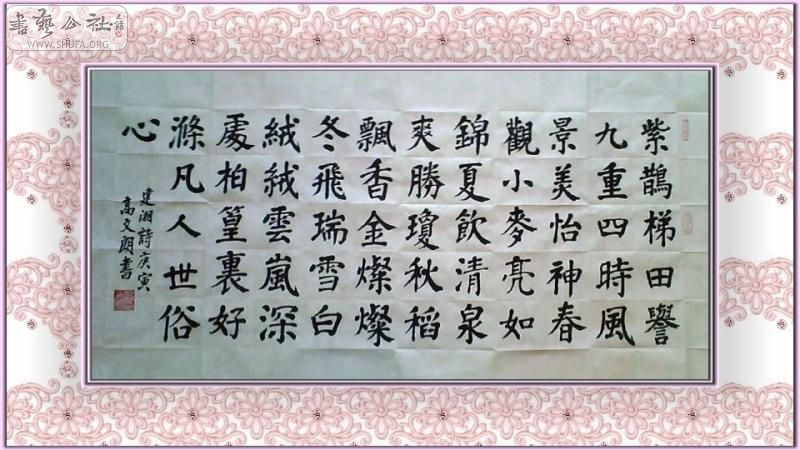 書藝公社
WWW.SHUFA.ORG
紫鵲梯田譽
九重四時風
景美怡神春
觀小麥亮如
錦夏飲清泉
爽勝瓊秋稻
飄香金燦燦
冬飛瑞雪白
絨絨雲嵐深
處柏篁裏好
滌凡人世俗
心
建湘詩庚寅
高文朗書